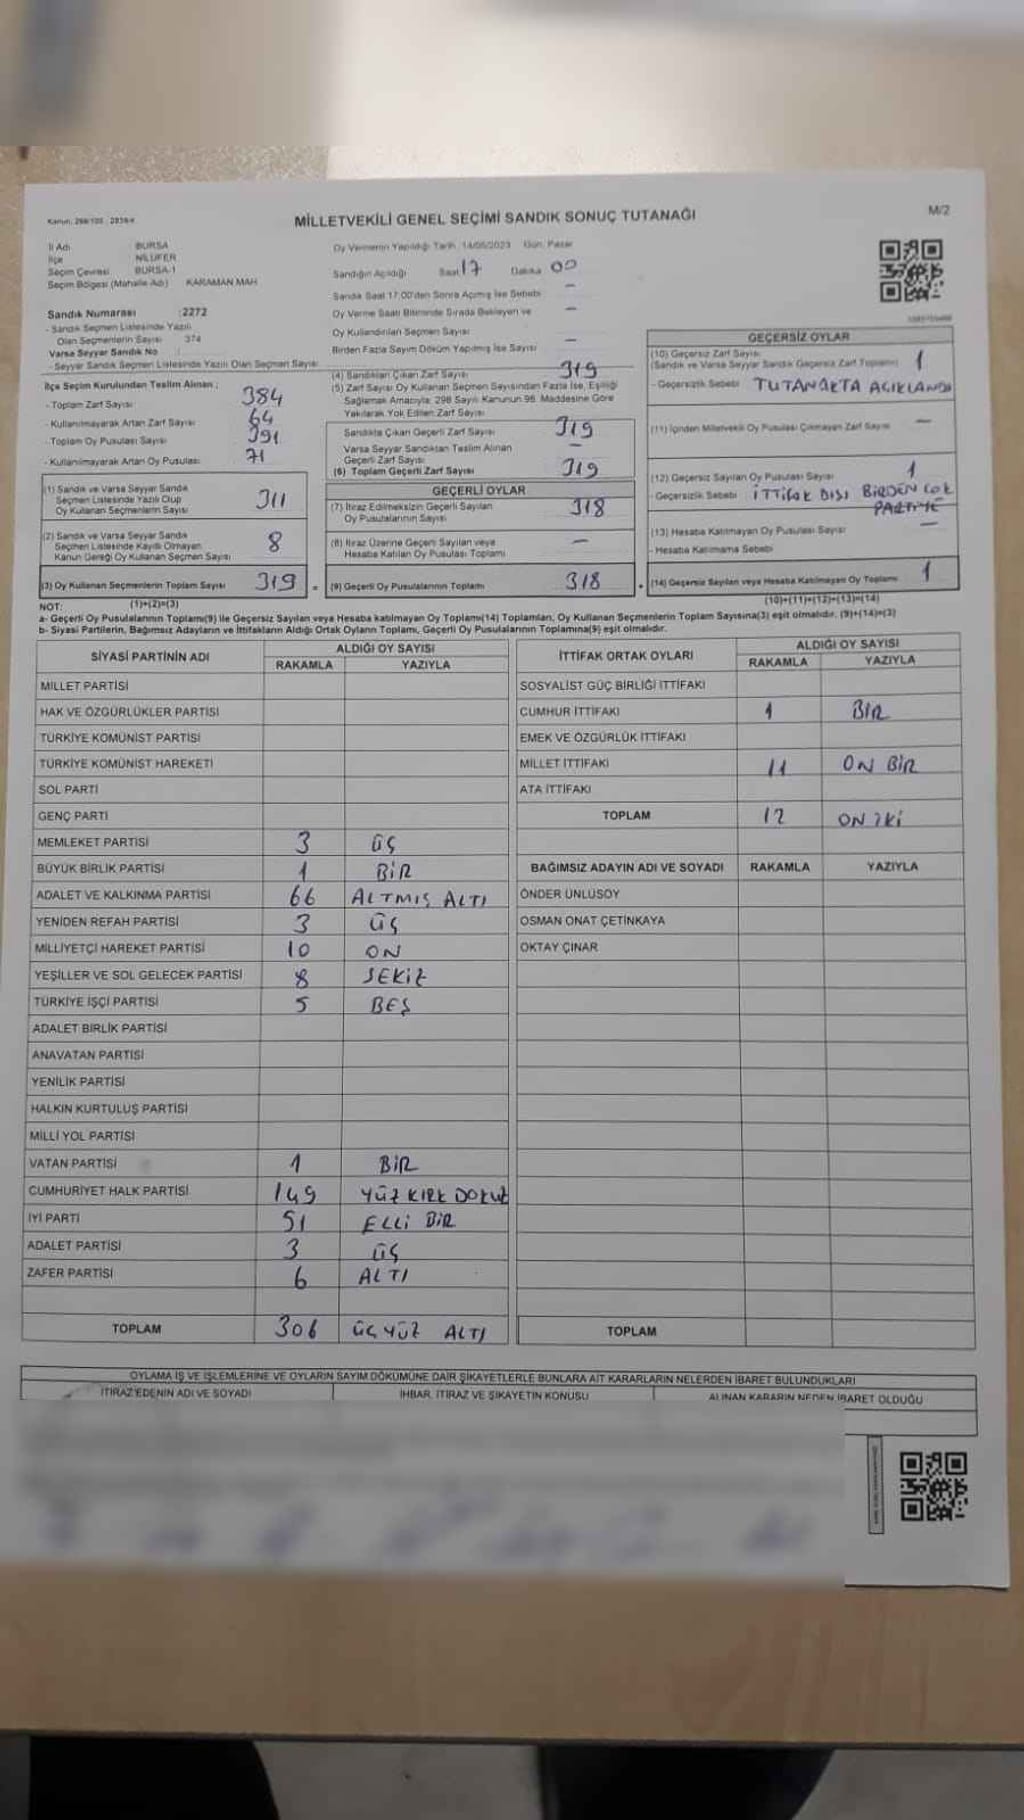 MİLLETVEKİLİ GENEL SEÇİMİ SANDIK SONUÇ TUTANAĞI
M/2
İl Adı BURSA
İlçe NİLÜFER
Seçim Çevresi BURSA-1
Seçim Bölgesi (Mahalle Adı) KARAMAN MAH
Sandık Numarası :2272
- Sandık Seçmen Listesinde Yazılı
Olan Seçmenlerin Sayısı 374
Varsa Seyyar Sandık No
- Seyyar Sandık Seçmen Listesinde Yazılı Olan Seçmen Sayısı
Oy Vermenin Yapıldığı Tarih :14/05/2023 Gün: Pazar
Sandığın Açıldığı Saat 17 Dakika 00
Sandık Saat 17:00'den Sonra Açılmış İse Sebebi -
Oy Verme Saati Bitiminde Sırada Bekleyen ve -
Oy Kullandırılan Seçmen Sayısı
Birden Fazla Sayım Döküm Yapılmış İse Sayısı -
İlçe Seçim Kurulundan Teslim Alınan ;
- Toplam Zarf Sayısı 384
- Kullanılmayarak Artan Zarf Sayısı 64
- Toplam Oy Pusulası Sayısı 391
- Kullanılmayarak Artan Oy Pusulası 71
(1) Sandık ve Varsa Seyyar Sandık
Seçmen Listesinde Yazılı Olup
Oy Kullanan Seçmenlerin Sayısı 311
(2) Sandık ve Varsa Seyyar Sandık
Seçmen Listesinde Kayıtlı Olmayan
Kanun Gereği Oy Kullanan Seçmen Sayısı 8
(3) Oy Kullanan Seçmenlerin Toplam Sayısı 319
(4) Sandıktan Çıkan Zarf Sayısı 319
(5) Zarf Sayısı Oy Kullanan Seçmen Sayısından Fazla İse, Eşitliği
Sağlamak Amacıyla; 298 Sayılı Kanunun 98. Maddesine Göre
Yakılarak Yok Edilen Zarf Sayısı
Sandıkta Çıkan Geçerli Zarf Sayısı 319
Varsa Seyyar Sandıktan Teslim Alınan
Geçerli Zarf Sayısı -
(6) Toplam Geçerli Zarf Sayısı 319
GEÇERLİ OYLAR
(7) İtiraz Edilmeksizin Geçerli Sayılan
Oy Pusulalarının Sayısı 318
(8) İtiraz Üzerine Geçerli Sayılan veya
Hesaba Katılan Oy Pusulası Toplamı -
(9) Geçerli Oy Pusulalarının Toplamı 318
GEÇERSİZ OYLAR
(10) Geçersiz Zarf Sayısı
(Sandık ve Varsa Seyyar Sandık Geçersiz Zarf Toplamı) 1
- Geçersizlik Sebebi TUTANAKTA AÇIKLANDI
(11) İçinden Milletvekili Oy Pusulası Çıkmayan Zarf Sayısı -
(12) Geçersiz Sayılan Oy Pusulası Sayısı 1
- Geçersizlik Sebebi İTTİFAK DIŞI BİRDEN ÇOK
PARTİYE
(13) Hesaba Katılmayan Oy Pusulası Sayısı -
- Hesaba Katılmama Sebebi
(14) Geçersiz Sayılan veya Hesaba Katılmayan Oy Toplamı 1
NOT: (1)+(2)=(3)
(10)+(11)+(12)+(13)=(14)
a- Geçerli Oy Pusulalarının Toplamı(9) ile Geçersiz Sayılan veya Hesaba katılmayan Oy Toplamı(14) Toplamları, Oy Kullanan Seçmenlerin Toplam Sayısına(3) eşit olmalıdır. (9)+(14)=(3)
b- Siyasi Partilerin, Bağımsız Adayların ve İttifakların Aldığı Ortak Oyların Toplamı, Geçerli Oy Pusulalarının Toplamına(9) eşit olmalıdır.
SİYASİ PARTİNİN ADI ALDIĞI OY SAYISI
RAKAMLA YAZIYLA
MİLLET PARTİSİ
HAK VE ÖZGÜRLÜKLER PARTİSİ
TÜRKİYE KOMÜNİST PARTİSİ
TÜRKİYE KOMÜNİST HAREKETİ
SOL PARTİ
GENÇ PARTİ
MEMLEKET PARTİSİ 3 ÜÇ
BÜYÜK BİRLİK PARTİSİ 1 BİR
ADALET VE KALKINMA PARTİSİ 66 ALTMIŞ ALTI
YENİDEN REFAH PARTİSİ 3 ÜÇ
MİLLİYETÇİ HAREKET PARTİSİ 10 ON
YEŞİLLER VE SOL GELECEK PARTİSİ 8 SEKİZ
TÜRKİYE İŞÇİ PARTİSİ 5 BEŞ
ADALET BİRLİK PARTİSİ
ANAVATAN PARTİSİ
YENİLİK PARTİSİ
HALKIN KURTULUŞ PARTİSİ
MİLLİ YOL PARTİSİ
VATAN PARTİSİ 1 BİR
CUMHURİYET HALK PARTİSİ 149 YÜZ KIRK DOKUZ
İYİ PARTİ 51 ELLİ BİR
ADALET PARTİSİ 3 ÜÇ
ZAFER PARTİSİ 6 ALTI
TOPLAM 306 ÜÇ YÜZ ALTI
İTTİFAK ORTAK OYLARI ALDIĞI OY SAYISI
RAKAMLA YAZIYLA
SOSYALİST GÜÇ BİRLİĞİ İTTİFAKI
CUMHUR İTTİFAKI 1 BİR
EMEK VE ÖZGÜRLÜK İTTİFAKI
MİLLET İTTİFAKI 11 ON BİR
ATA İTTİFAKI
TOPLAM 12 ON İKİ
BAĞIMSIZ ADAYIN ADI VE SOYADI RAKAMLA YAZIYLA
ÖNDER ÜNLÜSOY
OSMAN ONAT ÇETİNKAYA
OKTAY ÇINAR
TOPLAM
OYLAMA İŞ VE İŞLEMLERİNE VE OYLARIN SAYIM DÖKÜMÜNE DAİR ŞİKAYETLERLE BUNLARA AİT KARARLARIN NELERDEN İBARET BULUNDUKLARI
İTİRAZ EDENİN ADI VE SOYADI İHBAR, İTİRAZ VE ŞİKAYETİN KONUSU ALINAN KARARIN NEDEN İBARET OLDUĞU